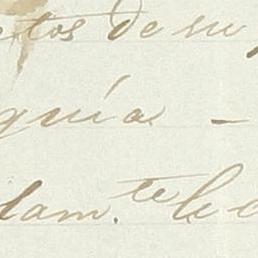 tos de su
guía -
dam.te